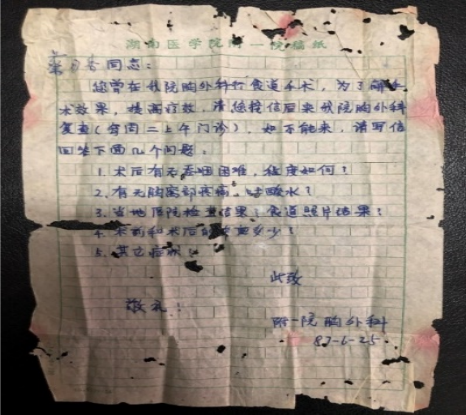 湖南医学院附一院稿纸
同志：
您曾在我院胸外科行食道手术，为了解手
术效果，提高疗效，请您接信后来我院胸外科
复查（每周二上午门诊），如不能来，请写信
回答下面几个问题。
1.术后有无吞咽困难，程度如何？
2.有无胸骨部疼痛，吐酸水？
3.当地医院检查结果？食道照片结果？
4.术前和术后的体重多少？
5.其它症状？
此致
敬礼！
附一院胸外科
87-6-25